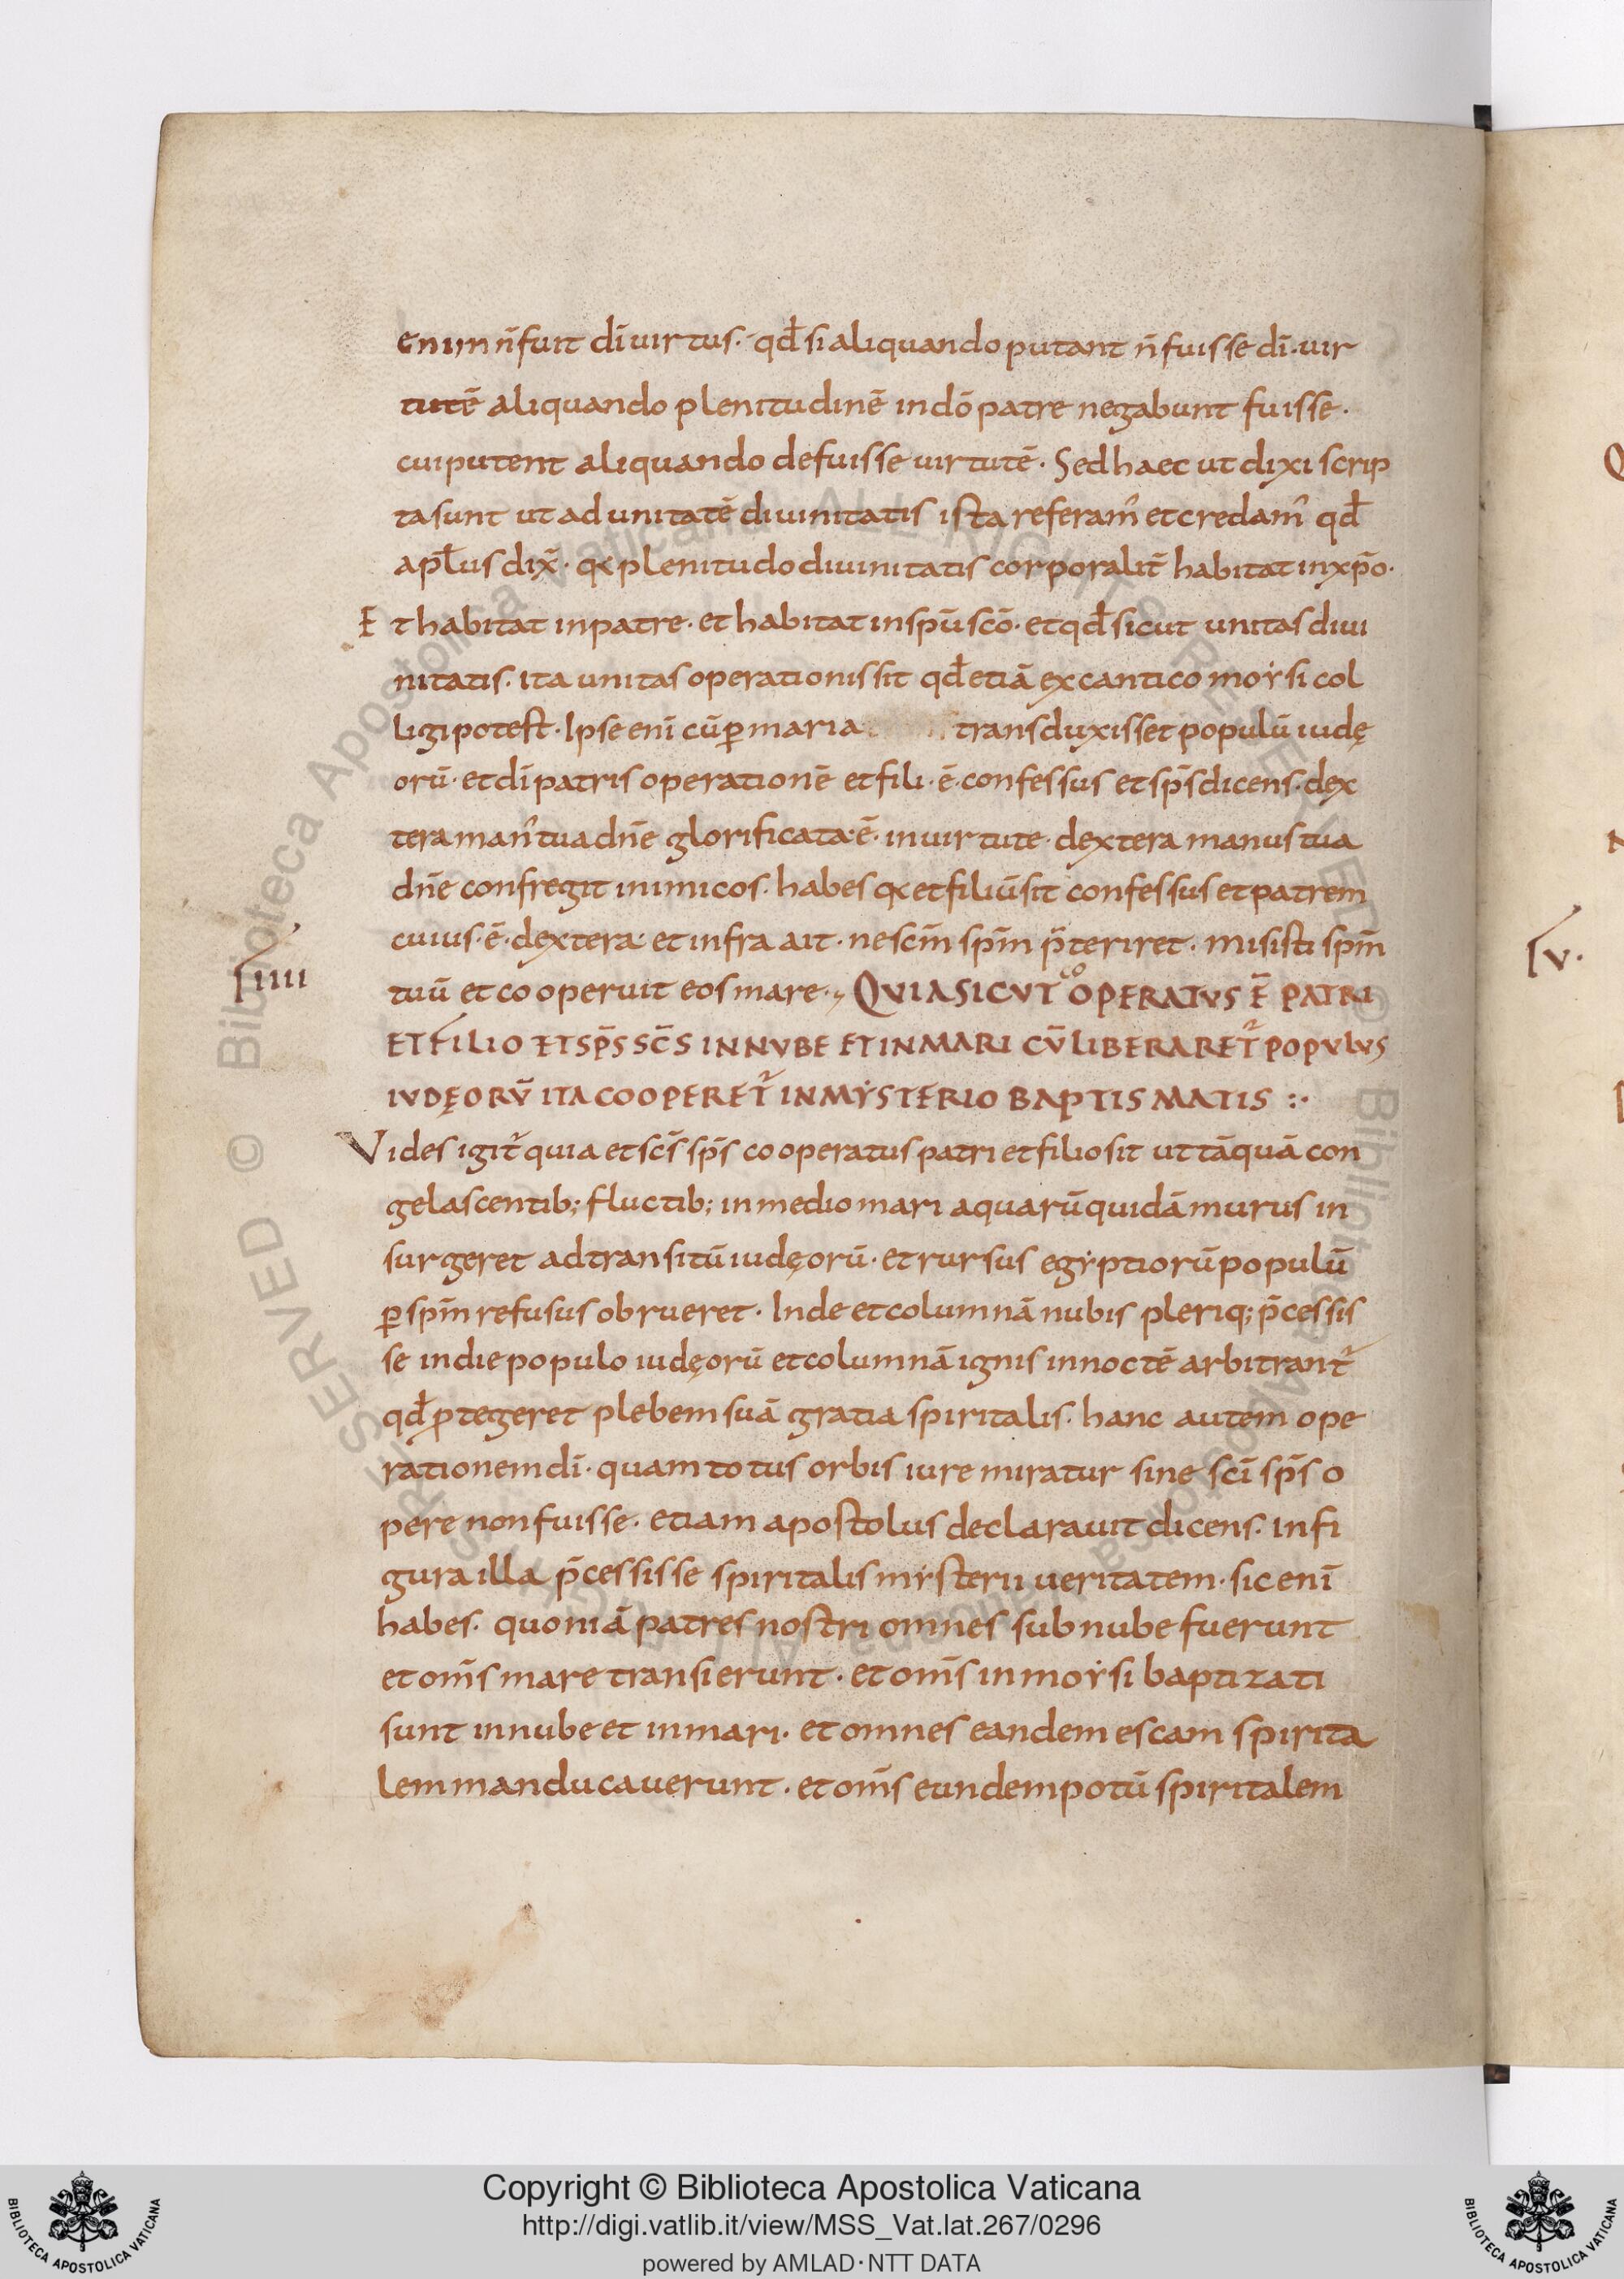 enim n̄ fuit dī uirtus · qd̄ si aliquando putant n̄ fuisse dī · uir
tutē aliquando plenitudinē in dō patre negabunt fuisse ·
cui putent aliquando defuisse uirtutē · Sed haec ut dixi scrip
ta sunt ut ad unitatē diuinitatis ista referam᾽ et credam᾽ qd̄
apl̄us dix̄ · qꝛ plenitudo diuinitatis corporalit̄ habitat in xp̄o ·
Et habitat in patre · et habitat in spū scō · et qd̄ sicut unitas diui
nitatis · ita unitas operationis sit qd̄ etiā ex cantico moẏsi col
ligi potest · Ipse enī cū ꝑ maria transduxisset populū iudę
orū · et dī patris operationē et fili · ē · confessus et sp̄s dicens · dex
tera man᾽ tua dn̄e glorificata · ē · in uirtute · dextera manus tua
dn̄e confregit inimicos · habes qꝛ et filiū sit confessus et patrem
cuius · ē · dextera · et infra ait · ne scm̄ spm̄ p̄teriret · misisti spm̄
IIII
tuū et cooperuit eos mare · QVIA SICVT coOPERATVS Ē PATRI
ET FILIO ET SP̄S SC̄S IN NVBE ET IN MARI CV̄ LIBERARET᾽ POPVLVS
IVDĘORV̄ ITA COOPERET᾽ IN MẎSTERIO BAPTISMATIS :·
Vides igit᾽ quia et sc̄s sp̄s cooperatus patri et filio sit ut tāquā con
gelascentib; fluctib; in medio mari aquarū quidā murus in
surgeret ad transitū iudęorū · et rursus egẏptiorū populū
ꝑ spm̄ refusus obrueret · Inde et columnā nubis pleriq; p̄cessis
se in die populo iudęorū et columnā ignis in noctē arbitrant᾽
qd̄ ꝓtegeret plebem suā gratia spiritalis · hanc autem ope
rationem dī · quam totus orbis iure miratur sine scī sp̄s o
pere non fuisse · etiam apostolus declarauit dicens · in fi
gura illa p̄cessisse spiritalis mẏsterii ueritatem · sic enī
habes · quoniā patres nostri omnes sub nube fuerunt
et om̄s mare transierunt · et om̄s in moẏsi baptizati
sunt in nube et in mari · et omnes eandem escam spirita
lem manducauerunt · et om̄s eundem potū spiritalem
V ·
Copyright © Biblioteca Apostolica Vaticana
http://digi.vatlib.it/view/MSS_Vat.lat.267/0296
powered by AMLAD · NTT DATA
BIBLIOTECA APOSTOLICA VATICANA
BIBLIOTECA APOSTOLICA VATICANA